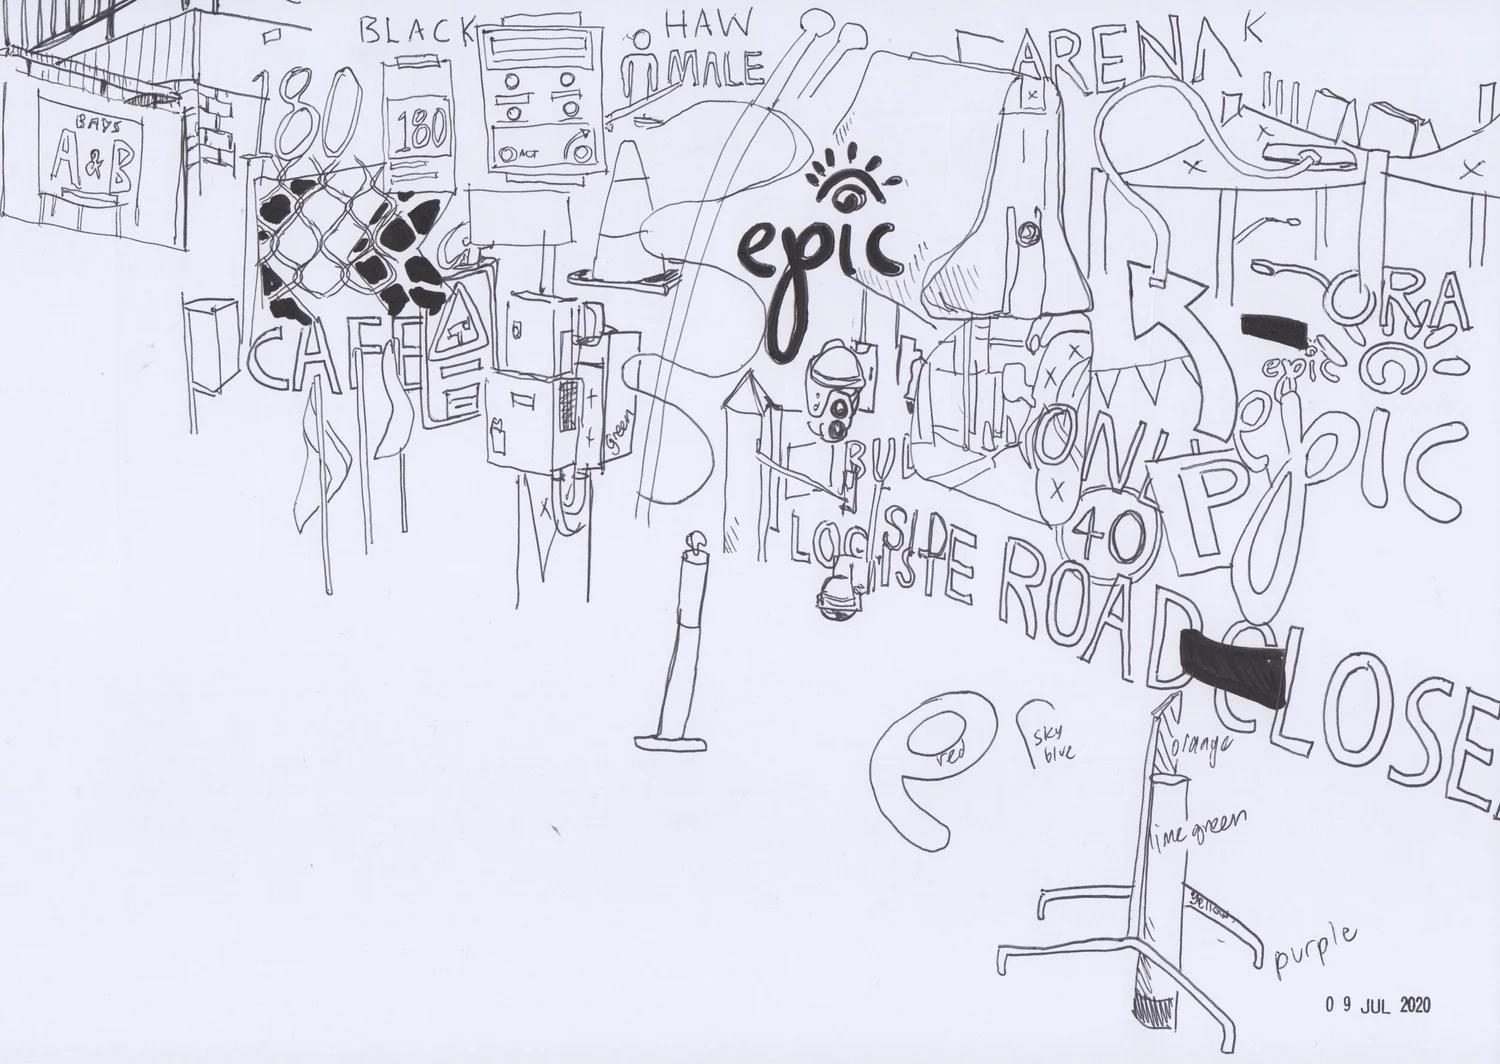 BLACK
HAW
MALE
ARENA
K
180
180
BAYS
A & B
ACT
epic
CAFE
green
ORA
epic
epic
BUL
ONL
P
40
LOGISTE
SIDE
ROAD CLOSE
red
sky
blue
orange
lime green
yellow
purple
09 JUL 2020